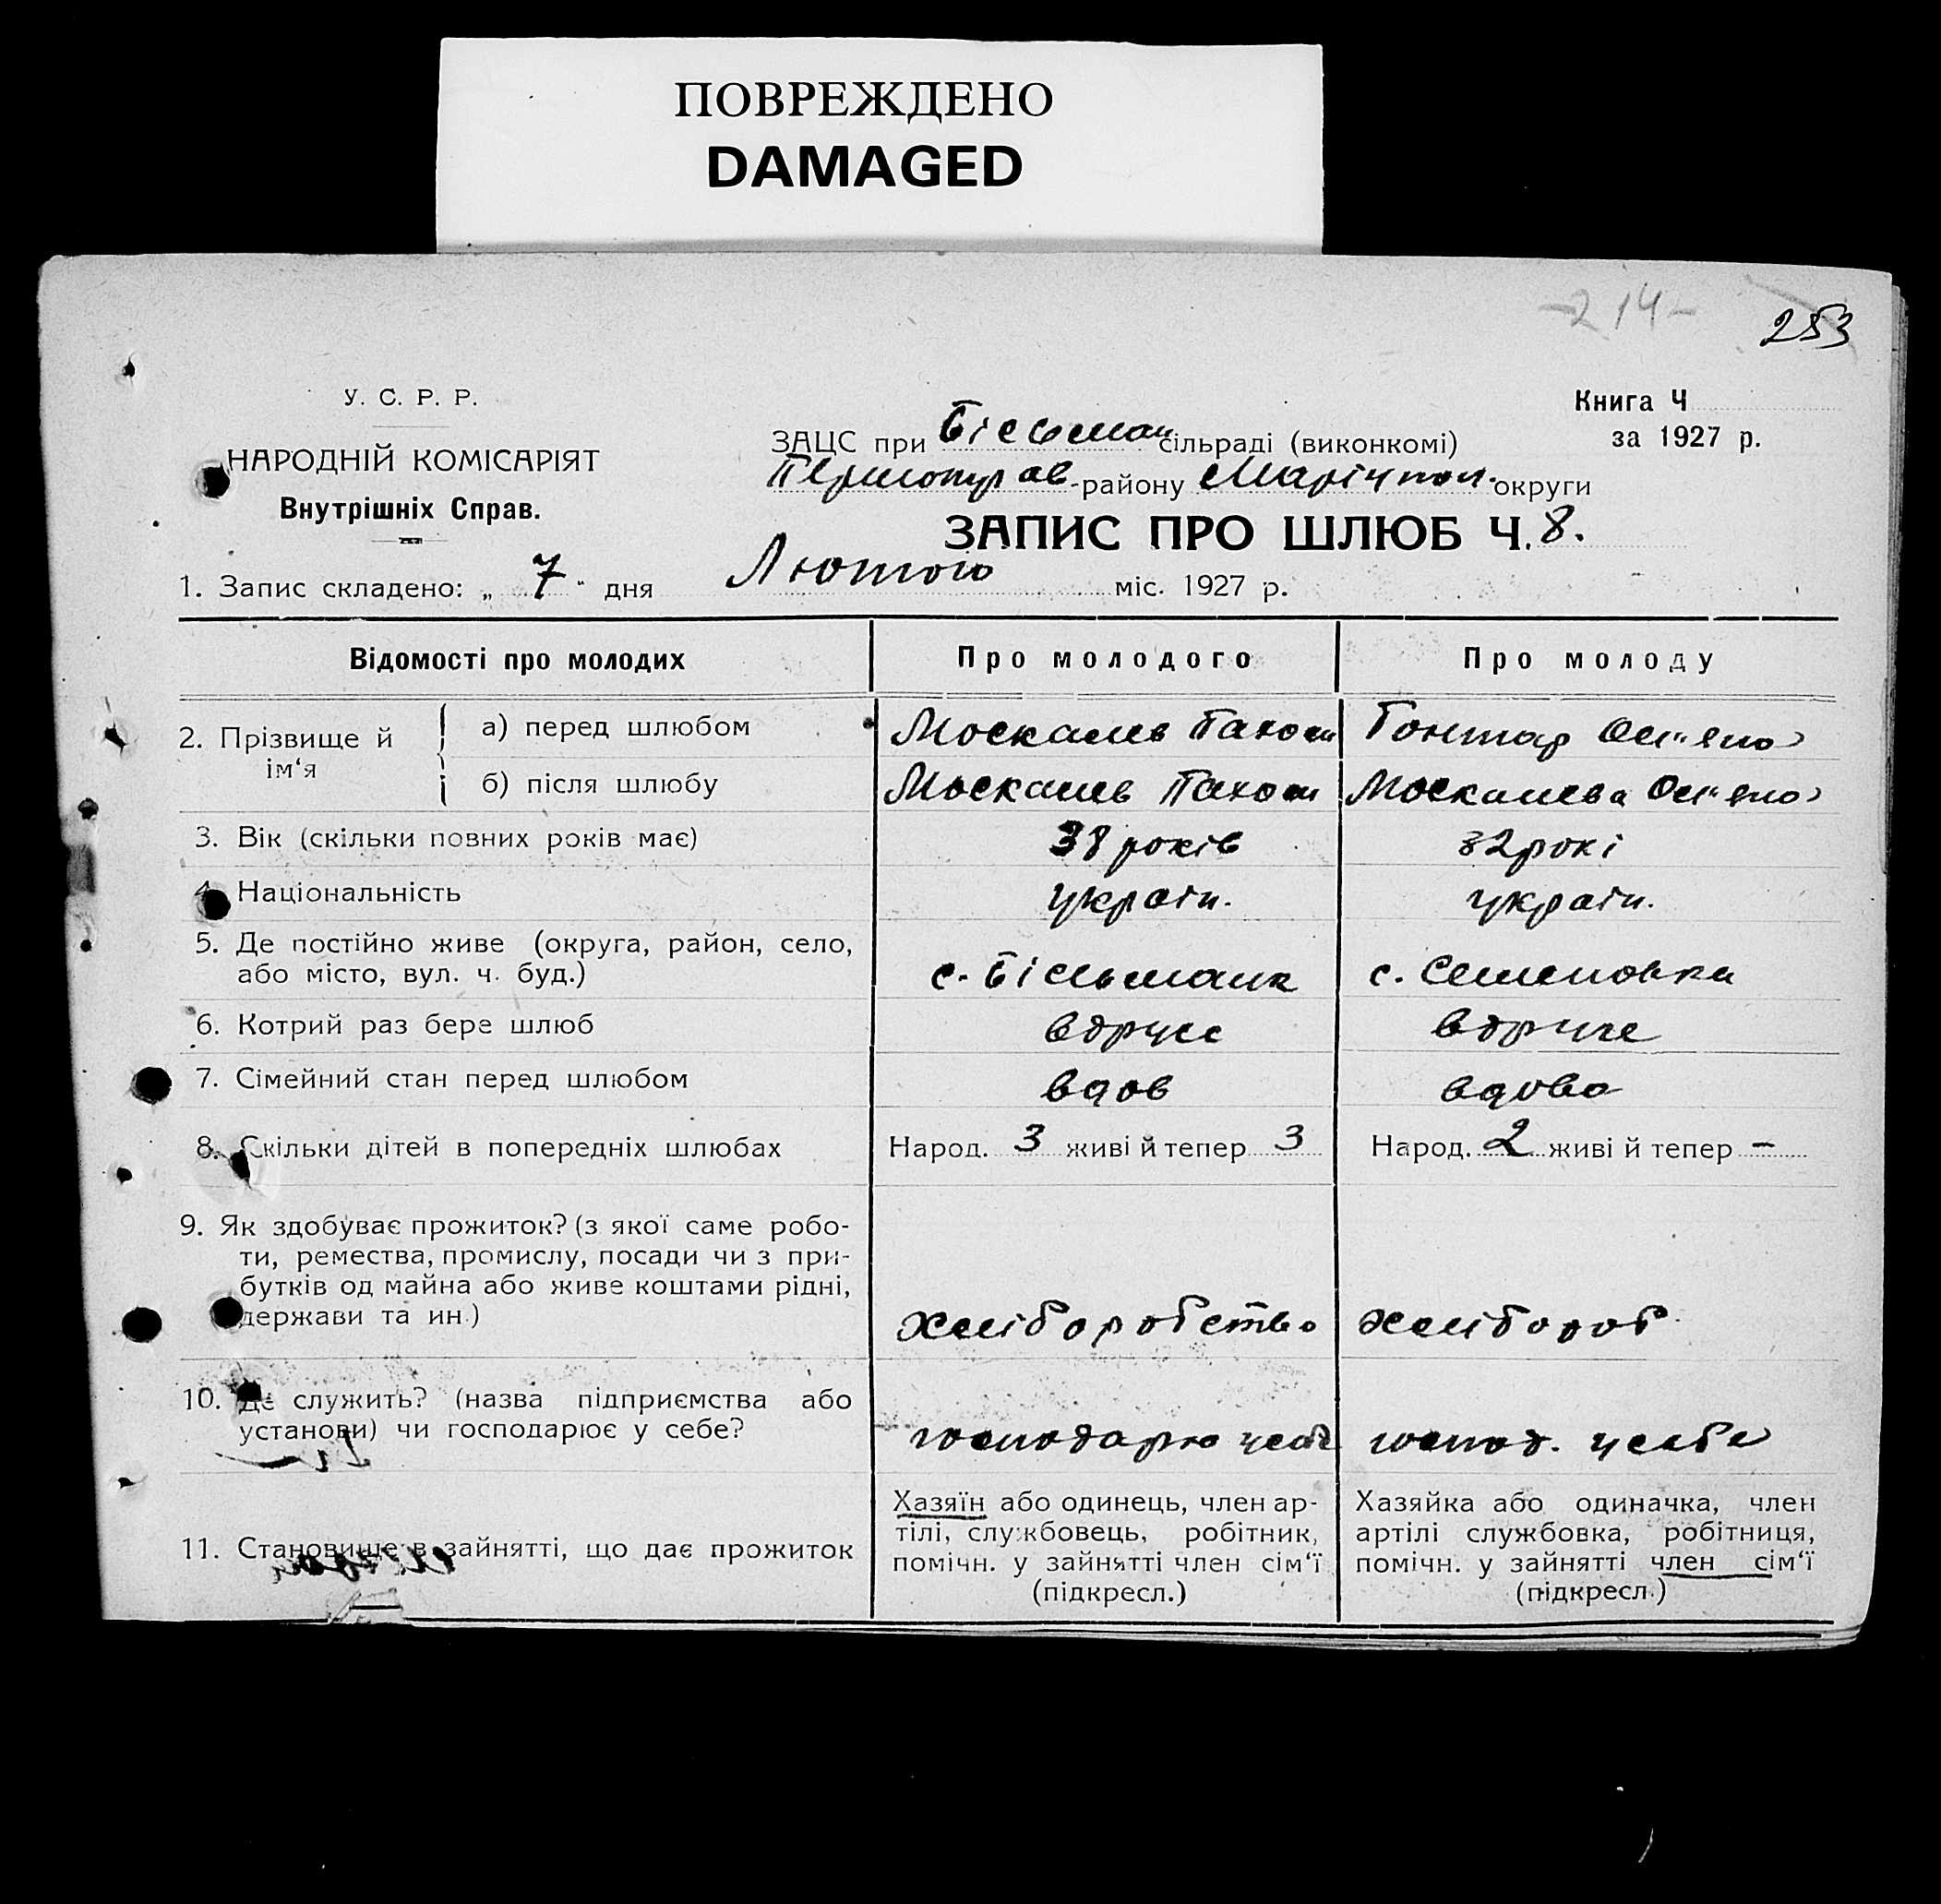 ПОВРЕЖДЕНО
DAMAGED
-214-
253
У. С. Р. Р.
НАРОДНІЙ КОМІСАРІЯТ
Внутрішніх Справ.
Книга Ч
за 1927 р.
ЗАЦС при Більман сільраді (виконкомі)
Першотрав-району Маріупол. округи
ЗАПИС ПРО ШЛЮБ Ч. 8.
1. Запис складено: „ 7 " дня Лютого міс. 1927 р.
Відомості про молодих Про молодого Про молоду
2. Прізвище й ім‘я
а) перед шлюбом Москалев Пахом Гонтар
б) після шлюбу Москалев Пахом Москалева
3. Вік (скільки повних років має) 38 років 32 рокі
4. Національність україн. україн.
5. Де постійно живе (округа, район, село,
або місто, вул. ч. буд.) с. Більманк с. Семеновка
6. Котрий раз бере шлюб вдруге вдруге
7. Сімейний стан перед шлюбом вдов вдова
8. Скільки дітей в попередніх шлюбах Народ. 3 живі й тепер 3 Народ. 2 живі й тепер –
9. Як здобуває прожиток? (з якої саме робо-
ти, ремества, промислу, посади чи з при-
бутків од майна або живе коштами рідні,
держави та ин.) хліборобство хлібороб
10. Де служить? (назва підприємства або
установи) чи господарює у себе? господарю усебе господ. усебе
11. Становище в зайнятті, що дає прожиток
Хазяїн або одинець, член ар-
тілі, службовець, робітник,
помічн. у зайнятті член сім‘ї
(підкресл.)
Хазяйка або одиначка, член
артілі службовка, робітниця,
помічн. у зайнятті член сім‘ї
(підкресл.)